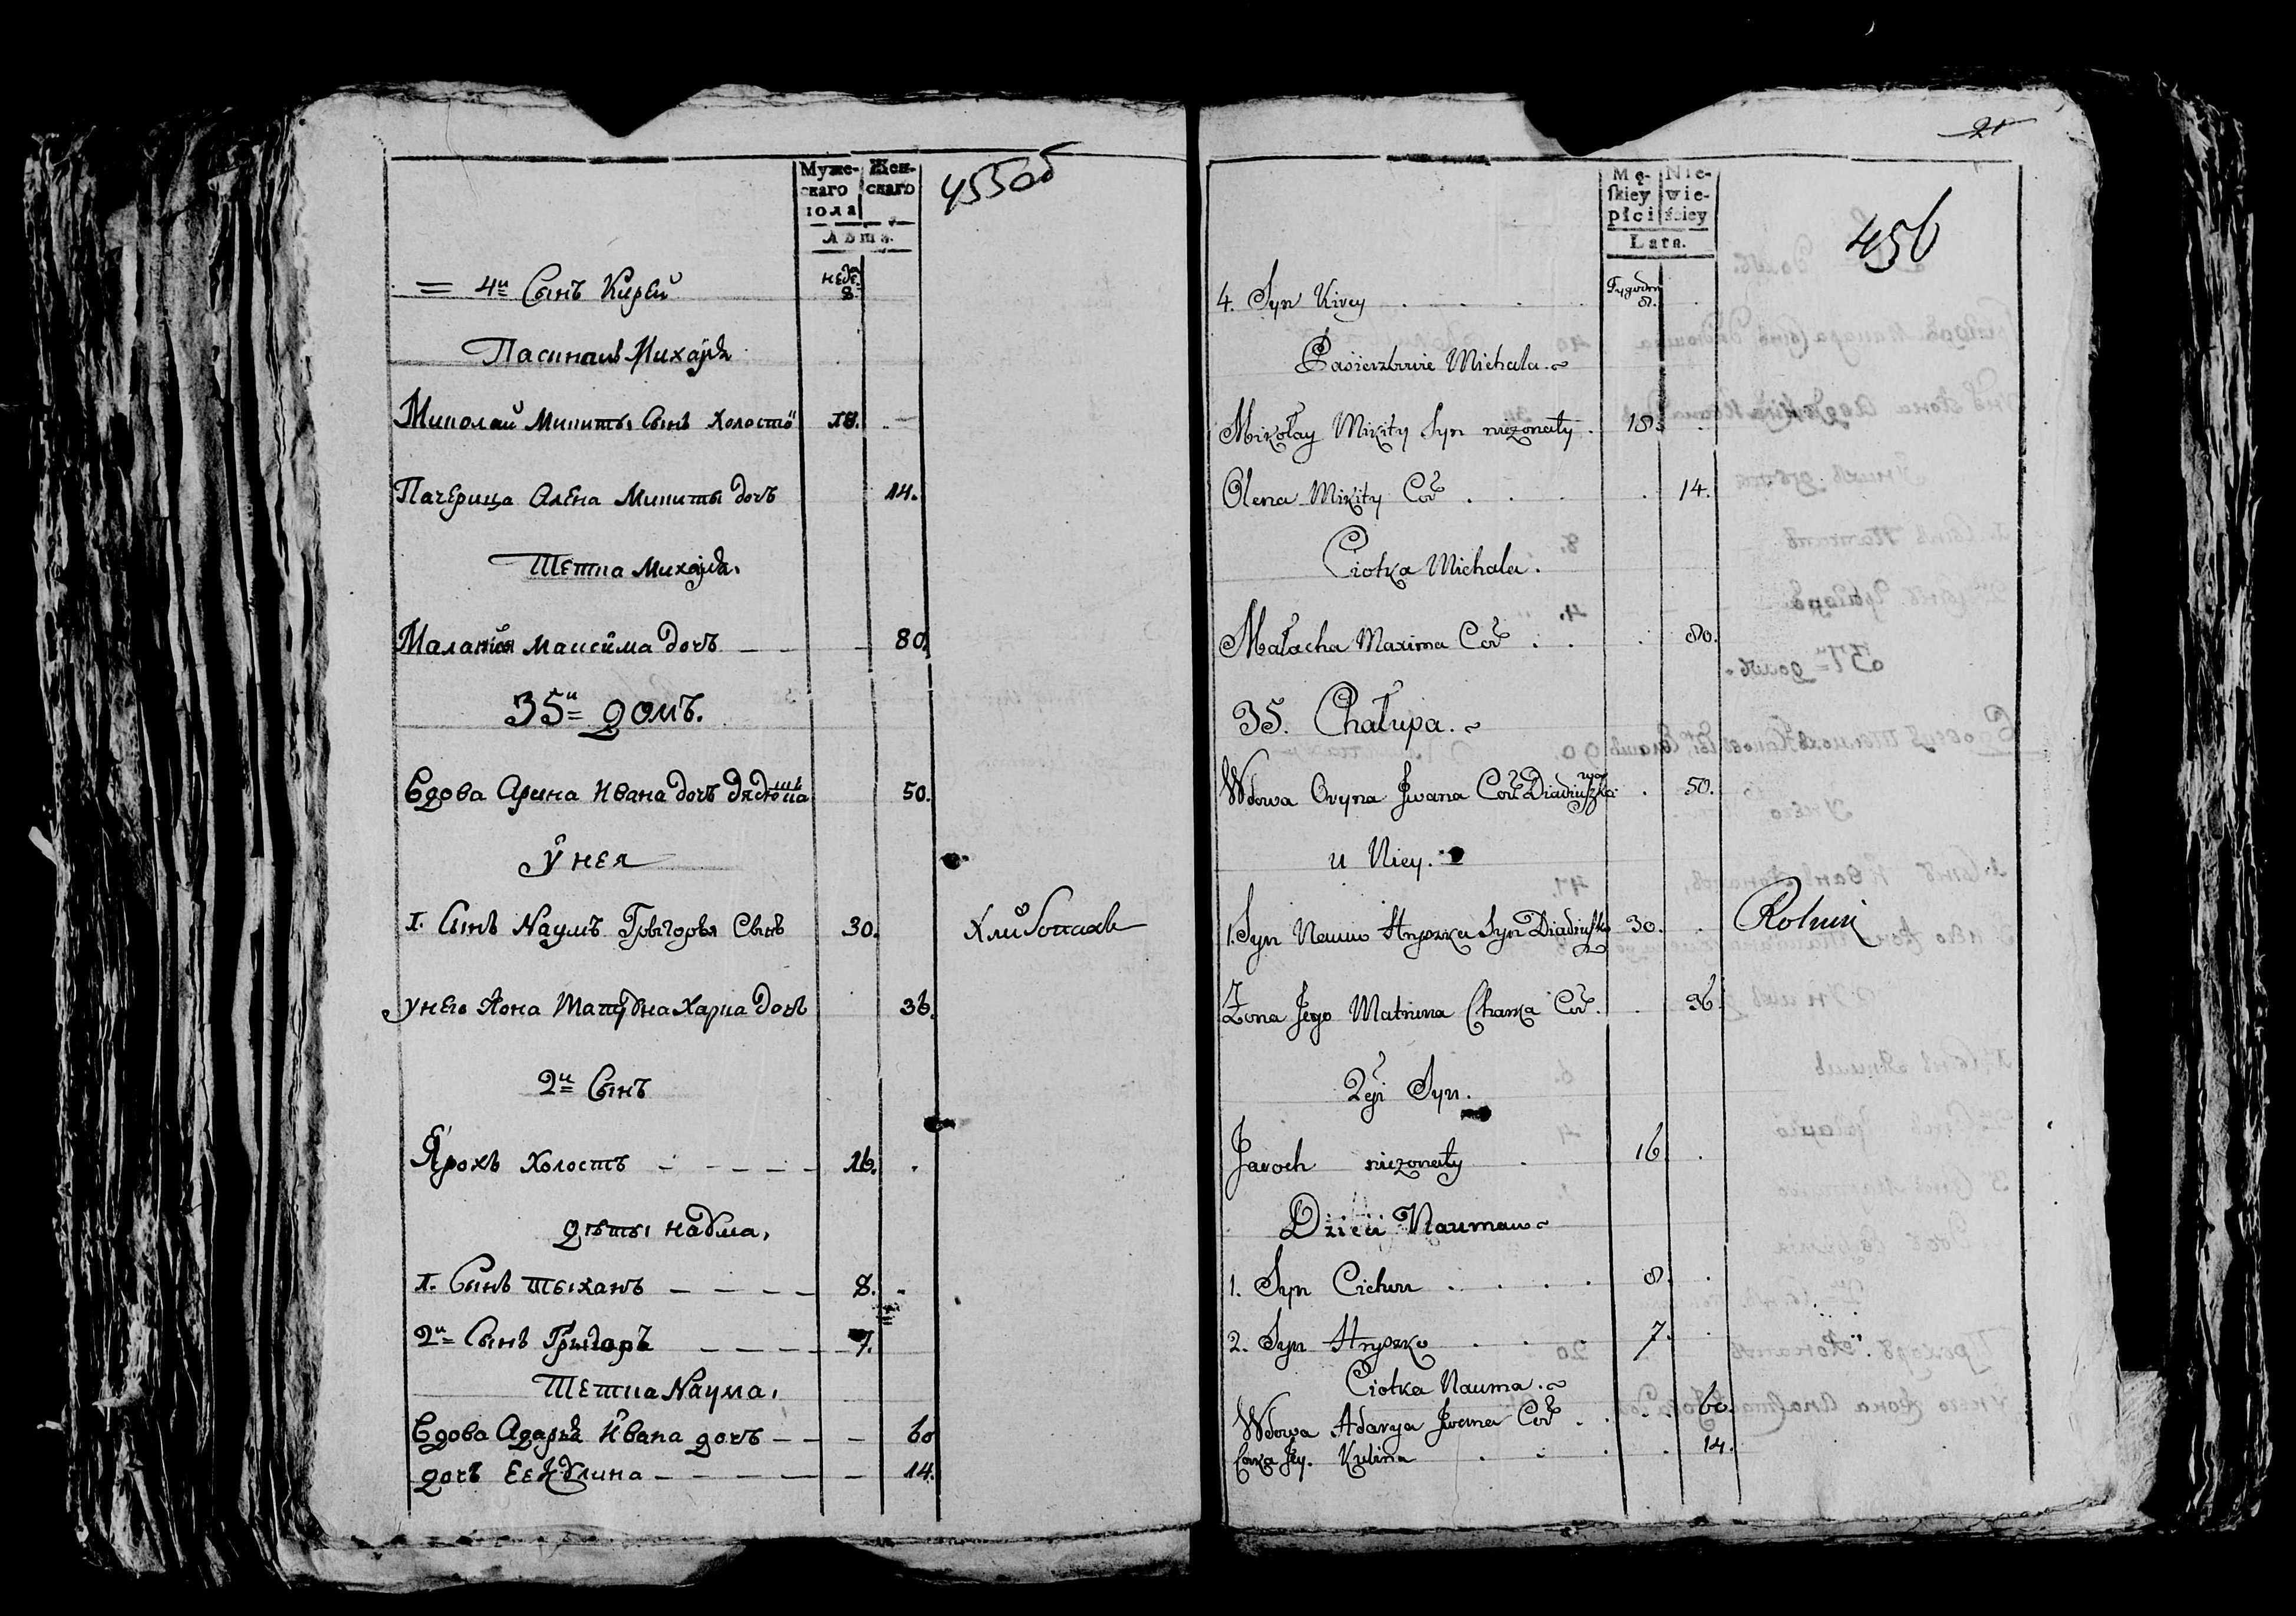 Муже- Жен-
скаго скаго
пола
Лѣта.
455об
= 4й Сынъ Кирей неде. 8.
Пасинки Михайла
Миколай Микиты Сынъ холостъ 18.
Пачерица Алена Микиты дочъ 14.
Тетка Михайла.
Малания Максима дочъ 80.
35й = домъ.
Вдова Арина Ивана дочъ 50.
У нея
1. Сынъ Наумъ Грыгорья Сынъ 30. Хлибопашъ
У него жона Матруна Харка дочъ 36.
2й Сынъ
Ярохъ холостъ 16.
Дѣты Наума.
1. Сынъ Тыханъ 8.
2й Сынъ Грыгоръ 7.
Тетка Наума.
Вдова Адарья Ивана дочъ 60
дочъ Ее Кулина 14.
21
Mę- Nie-
skiey wie-
płci ściey
Lata.
456
4. Syn Kirey Tygodni 8.
Pasierzbowie Michala.
Mikołay Mikity Syn nieżonaty 18.
Olena Mikity Cór 14.
Ciotka Michala.
Małacha Maxima Cór 80.
35. Chałupa.
Wdowa Oryna Jwana Cór Diadiuszkowa 50.
u Niey.
1. Syn Naum Hryszka Syn Diadiuszko 30. Rolnik
Żona Jego Matruna Charka Cór. 36.
2gi Syn.
Jaroch nieżonaty 16.
Dzieci Nauma
1. Syn Cichon 8.
2. Syn Hryszko 7.
Ciotka Nauma.
Wdowa Adarya Jwana Cór 60.
Corka Jey. Kulina 14.